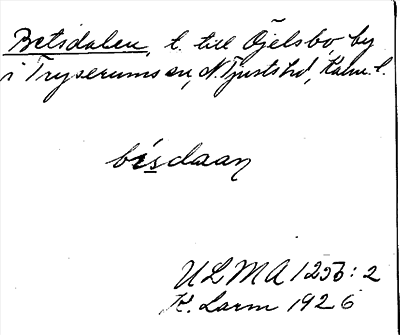 Betsdalen, t. till Öjelsbo, by
i Tryserums sn, N. Tjusts hd, Kalm. l.
bésdaaŋ
ULMA 1256:2
K. Larm 1926